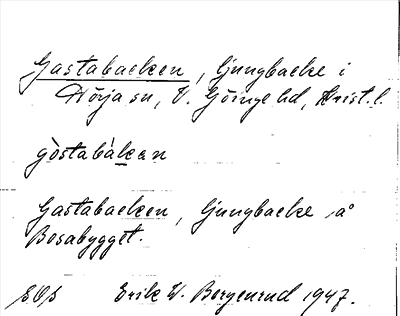 Gastabacken, ljungbacke i
Hörja sn, V. Göinge hd, Krist. l.
gòstabàken
Gastabacken, ljungbacke å
Bosabygget.
Erik W. Bergenrud 1947.